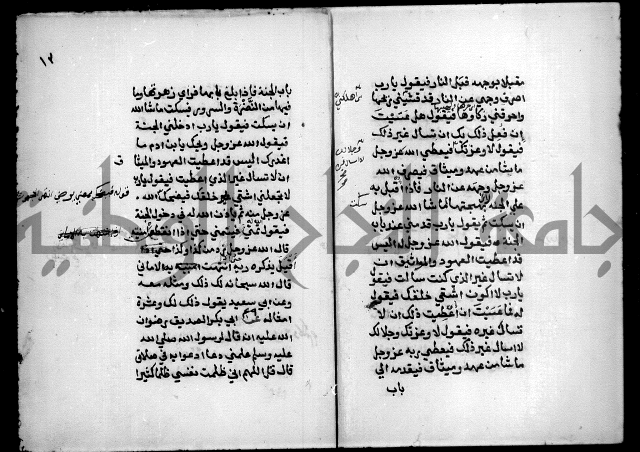 مقبلا بوجهه قبل النار فيقول يارب
اصرف وجهي عن النار قد قشبني ريحها
واحرقني ذكاوها فيقول هل عسيت
ان فعل ذلك بك ان تسال غير ذلك
فيقول لا وعزتك فيعطي الله عز وجل
ماشا من عهد وميثاق فيصرف الله
عز وجل وجهه عن النار فاذا اقبل به
على الجنة راي بهجتها ماشا الله عز وجل
فيقول يارب قدمني عند باب
الجنة فيقول الله عز وجل اليس
قد اعطيت العهود والمواثيق ان
لا تسال غير الذي كنت سالت فيقول
يارب لا اكون اشقى خلقك فيقول
فما عسيت ان اعطيت ذلك ان لا
تسال غيره فيقول لا وعزتك وجلالك
لا اسال غير ذلك فيعطي ربه عز وجل
ماشا من عهد وميثاق فيقدمه الي
باب
١٣
باب الجنة فاذا بلغ بابها فراي زهرتها وما
فيها من النضرة والسرور فيسكت ماشا الله
ان يسكت فيقول يارب ادخلني الجنة
فيقول الله عز وجل ويحك يا بن ادم ما
اغدرك اليس قد اعطيت العهود والميثاق
ان لا تسال غير الذي اعطيت فيقول يارب
لا تجعلني اشقى خلقك فيضحك الله
عز وجل منه ثم ياذن الله له في دخول الجنة
فيقول تمني فيتمني حتى اذا انقطع
قال الله عز وجل من كذا وكذا
اقبل يذكره ربه انتهت به الاماني
قال الله سبحانه لك ذلك ومثله معه
وعن ابي سعيد يقول ذلك لك وعشرة
امثاله ابي بكر الصديق رضوان
الله عليه انه قال لرسول الله صلي الله
عليه وسلم علمني دعا ادعو به في صلاتي
قال قل اللهم اني ظلمت نفسي ظلما كثيرا
جامعة النجاح الوطنية